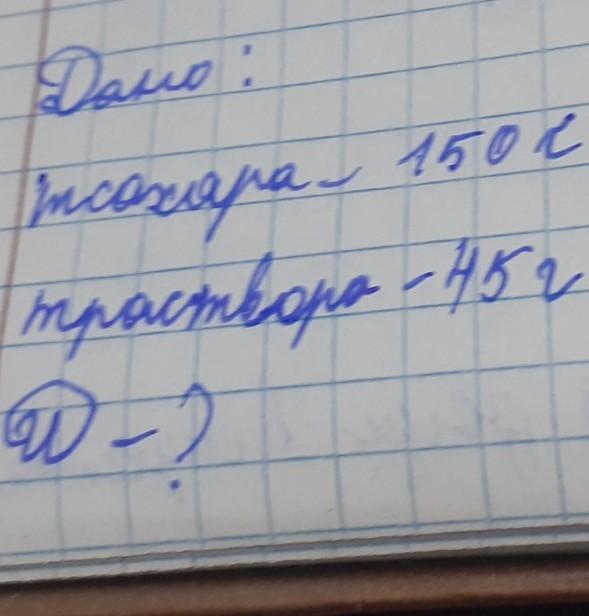 Дано:
mсахара - 150 г
mраствора - 45 г
W - ?